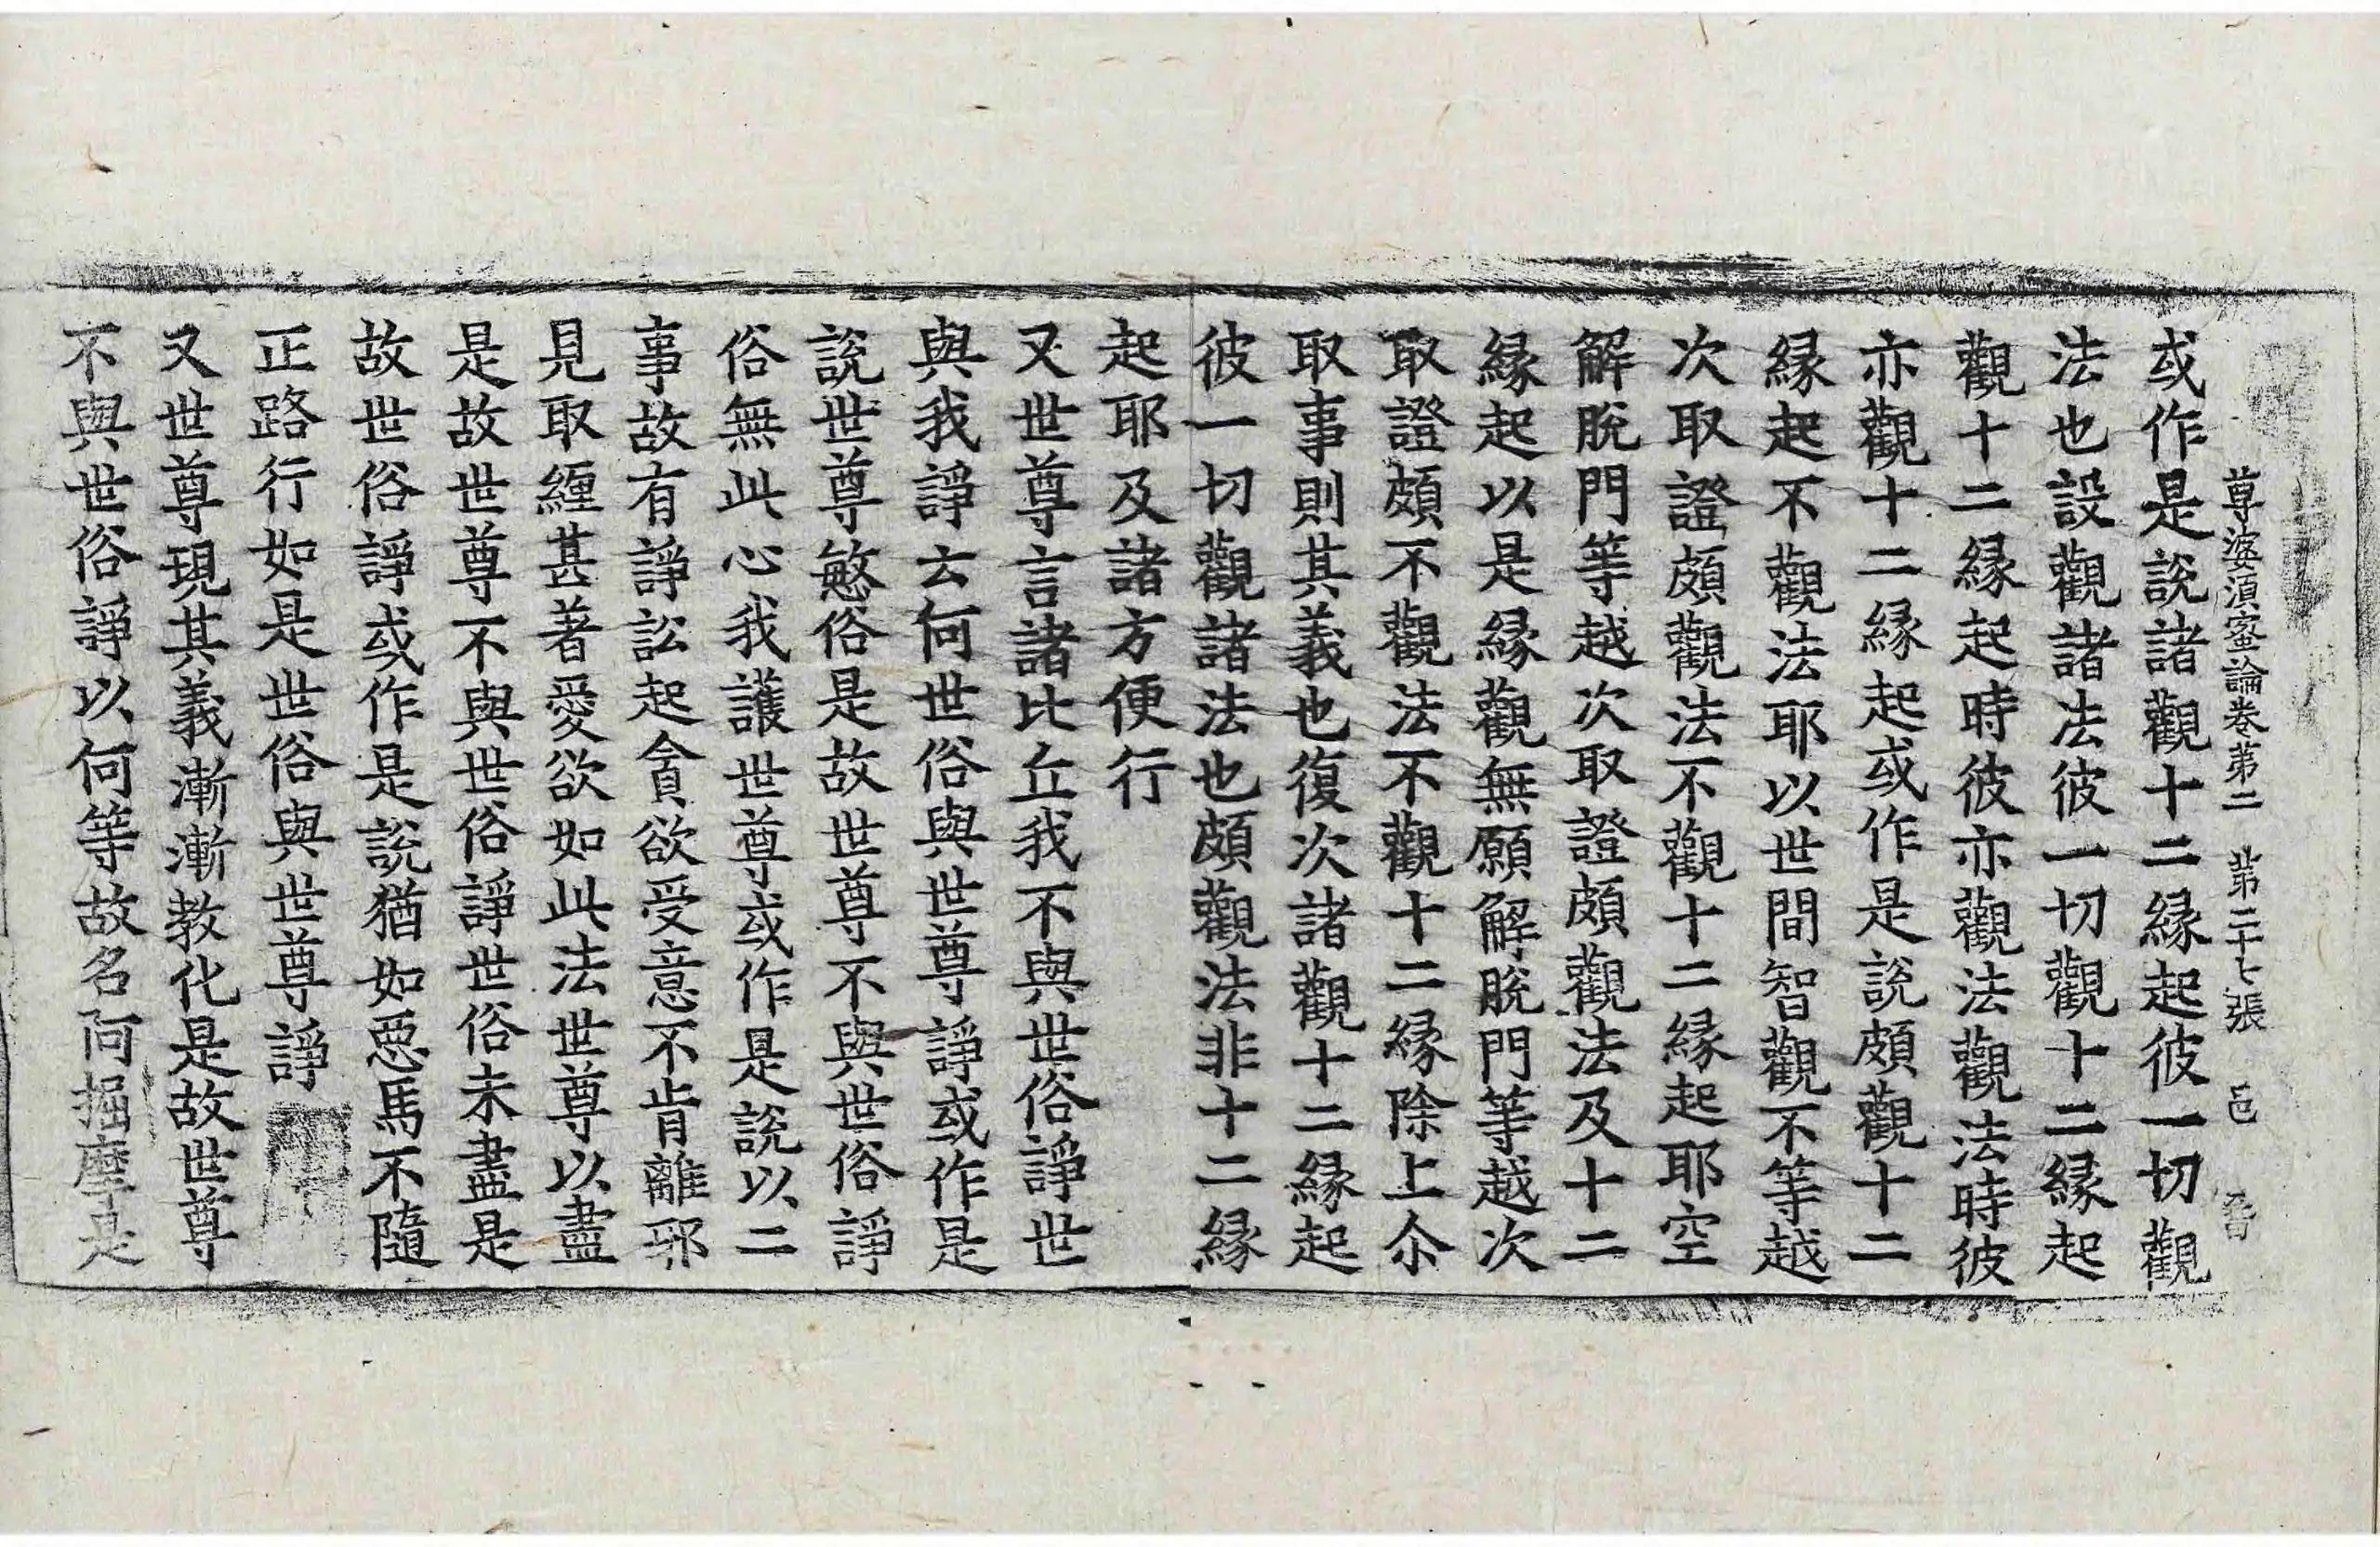 尊婆須蜜論卷第二　第二十七張　邑
或作是說諸觀十二緣起彼一切觀
法也設觀諸法彼一切觀十二緣起
觀十二緣起時彼亦觀法觀法時彼
亦觀十二緣起或作是說頗觀十二
緣起不觀法耶以世間智觀不等越
次取證頗觀法不觀十二緣起耶空
解脫門等越次取證頗觀法及十二
緣起以是緣觀無願解脫門等越次
取證頗不觀法不觀十二緣除上尒
取事則其義也復次諸觀十二緣起
彼一切觀諸法也頗觀法非十二緣
起耶及諸方便行
又世尊言諸比丘我不與世俗諍世
與我諍云何世俗與世尊諍或作是
說世尊慜俗是故世尊不與世俗諍
俗無此心我護世尊或作是說以二
事故有諍訟起貪欲受意不肯離邪
見取纏甚著愛欲如此法世尊以盡
是故世尊不與世俗諍世俗未盡是
故世俗諍或作是說猶如惡馬不隨
正路行如是世俗與世尊諍
又世尊現其義漸漸教化是故世尊
不與世俗諍以何等故名阿掘摩是